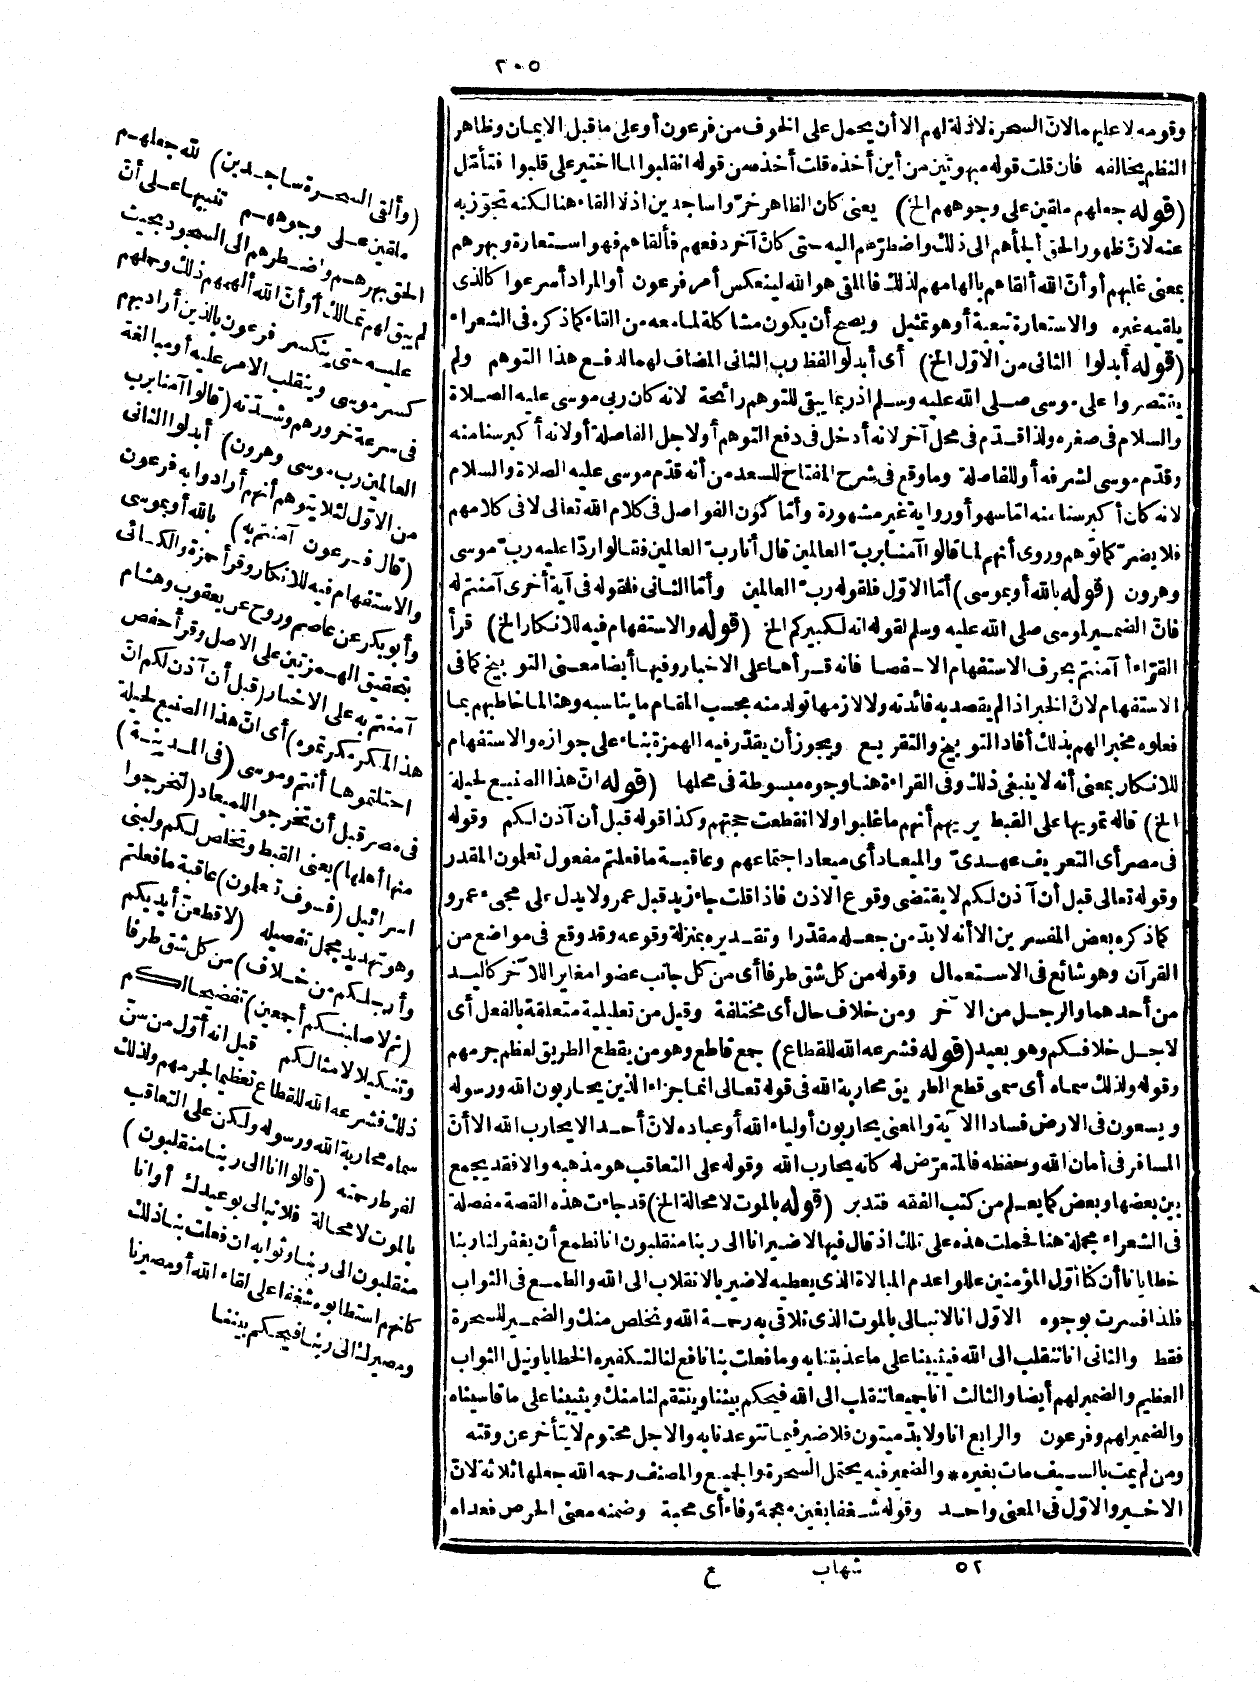 ٢٠٥
وقومه لا عليهم ما لان السحرة لا ذلة لهم الا أن يحمل على الخوف من فرعون أو على ما قبل الايمان وظاهر
النظم يخالفه فان قلت قوله مبهوتين من أين أخذه قلت أخذه من قوله انقلبوا لما اختير على قلبوا فتأمّل
(قوله جعلهم ملقين على وجوههم الخ) يعنى كان الظاهر خرّوا ساجدين اذ لا القاء هنا لكنه تجوّز به
عنه لانّ ظهور الحق ألجأهم الى ذلك واضطرّهم اليه حتى كانّ آخر دفعهم فألقاهم فهو استعارة وبهرهم
بمعنى غلبهم أو أنّ الله ألقاهم بالهامهم لذلك فالملقى هو الله لينعكس أمر فرعون أو المراد أسرعوا كالذى
يلقيه غيره والاستعارة تبعية أو هو تمثيل ويصح أن يكون مشاكلة لما معه من القاء كما ذكره فى الشعراء
(قوله أبدلوا الثانى من الاوّل الخ) أى أبدلوا لفظ رب الثانى المضاف لهما لدفع هذا التوهم ولم
يقتصروا على موسى صلى الله عليه وسلم اذ ربما يبقى للتوهم رائحة لانه كان ربى موسى عليه الصلاة
والسلام فى صغره ولذا قدّم فى محل آخر لانه أدخل فى دفع التوهم أو لاجل الفاصلة أو لانه أكبر سنا منه
وقدّم موسى لشرفه أو للفاصلة وما وقع فى شرح المفتاح للسعد من أنه قدّم موسى عليه الصلاة والسلام
لانه كان أكبر سنا منه امّا سهو أو رواية غير مشهورة وأمّا كون الفواصل فى كلام الله تعالى لا فى كلامهم
فلا يضرّ كما توهم وروى أنهم لما قالوا آمنا بربّ العالمين قال أنا ربّ العالمين فقالوا ردّا عليه ربّ موسى
وهرون (قوله بالله أو بموسى) أمّا الاوّل فلقوله ربّ العالمين وأمّا الثانى فلقوله فى آية أخرى آمنتم له
فانّ الضمير لموسى صلى الله عليه وسلم لقوله انه لكبيركم الخ (قوله والاستفهام فيه للانكار الخ) قرأ
القرّاء أآمنتم بحرف الاستفهام الا حفصا فانه قرأها على الاخبار وفيها أيضا معنى التوبيخ كما فى
الاستفهام لانّ الخبر اذا لم يقصد به فائدته ولا لازمها تولد منه بحسب المقام ما يناسبه وهنا لما خاطبهم بما
فعلوه مخبرا لهم بذلك أفاد التوبيخ والتقريع ويجوز أن يقدّر فيه الهمزة بناء على جوازه والاستفهام
للانكار بمعنى أنه لا ينبغى ذلك وفى القراءة هنا وجوه مبسوطة فى محلها (قوله انّ هذا الصنيع لحيلة
الخ) قاله تمويها على القبط يريهم أنهم ما غلبوا ولا انقطعت حجتهم وكذا قوله قبل أن آذن لكم وقوله
فى مصر أى التعريف عهدىّ والميعاد أى ميعاد اجتماعهم وعاقبة ما فعلتم مفعول تعلمون المقدر
وقوله تعالى قبل أن آذن لكم لا يقتضى وقوع الاذن فاذا قلت جاء زيد قبل عمرو لا يدل على مجىء عمرو
كما ذكره بعض المفسرين الا أنه لا بدّ من جعله مقدّرا وتقديره بمنزلة وقوعه وقد وقع فى مواضع من
القرآن وهو شائع فى الاستعمال وقوله من كل شق طرفا أى من كل جانب عضوا مغايرا للآخر كاليد
من أحدهما والرجل من الآخر ومن خلاف حال أى مختلفة وقيل من تعليلية متعلقة بالفعل أى
لاجل خلافكم وهو بعيد (قوله فشرعه الله للقطاع) جمع قاطع وهو من يقطع الطريق لعظم جرمهم
وقوله ولذلك سماه أى سمى قطع الطريق محاربة الله فى قوله تعالى انما جزاء الذين يحاربون الله ورسوله
ويسعون فى الارض فسادا الآية والمعنى يحاربون أولياء الله أو عباده لانّ أحدا لا يحارب الله الا أنّ
المسافر فى أمان الله وحفظه فالمتعرّض له كانه يحارب الله وقوله على التعاقب هو مذهبه والا فقد يجمع
بين بعضها وبعض كما يعلم من كتب الفقه فتدبر (قوله بالموت لا محالة الخ) قد جاءت هذه القصة مفصلة
فى الشعراء مجملة هنا فحملت هذه على تلك اذ قال فيها لا ضير انا الى ربنا منقلبون انا نطمع أن يغفر لنا ربنا
خطايانا أن كنا أوّل المؤمنين عللوا عدم المبالاة الذى يعطيه لا ضير بالانقلاب الى الله والطمع فى الثواب
فلذا فسرت بوجوه الاوّل انا لا نبالى بالموت الذى نلاقى به رحمة الله ونخلص منك والضمير للسحرة
فقط والثانى انا ننقلب الى الله فيثيبنا على ما عذبتنا به وما فعلت بنا نافع لنا لتكفيره الخطايا ونيل الثواب
العظيم والضمير لهم أيضا والثالث انا جميعا ننقلب الى الله فيحكم بيننا وينتقم لنا منك ويثيبنا على ما قاسيناه
والضمير لهم وفرعون والرابع انا ولا بدّ ميتون فلا ضير فيما تتوعدنا به والاجل محتوم لا يتأخر عن وقته
ومن لم يمت بالسيف مات بغيره * والضمير فيه يحتمل السحرة والجميع والمصنف رحمه الله جعلها ثلاثة لانّ
الاخير والاوّل فى المعنى واحد وقوله شغفا بغين معجمة وفاء أى محبة وضمنه معنى الحرص فعداه
(وألقى السحرة ساجدين) لله جعلهم
ملقين على وجوههم تنبيها على أنّ
الحق بهرهم واضطرهم الى السجود بحيث
لم يبق لهم تمالك أو أنّ الله ألهمهم ذلك وحملهم
عليه حتى ينكسر فرعون بالذين أراد بهم
كسر موسى وينقلب الامر عليه أو مبالغة
فى سرعة خرورهم وشدّته (قالوا آمنا برب
العالمين رب موسى وهرون) أبدلوا الثانى
من الاوّل لئلا يتوهم أنهم أرادوا به فرعون
(قال فرعون آمنتم به) بالله أو بموسى
والاستفهام فيه للانكار وقرأ حمزة والكسائى
وأبو بكر عن عاصم وروح عن يعقوب وهشام
بتحقيق الهمزتين على الاصل وقرأ حفص
آمنتم به على الاخبار (قبل أن آذن لكم انّ
هذا لمكر مكرتموه) أى انّ هذا الصنيع لحيلة
احتلتموها أنتم وموسى (فى المدينة)
فى مصر قبل أن تخرجوا للميعاد (لتخرجوا
منها أهلها) يعنى القبط وتخلص لكم ولبنى
اسرائيل (فسوف تعلمون) عاقبة ما فعلتم
وهو تهديد مجمل تفصيله (لاقطعنّ أيديكم
وأرجلكم من خلاف) من كل شق طرفا
(ثم لاصلبنكم أجمعين) تفضيحا لكم
وتنكيلا لامثالكم قيل انه أوّل من سنّ
ذلك فشرعه الله للقطاع تعظيما لجرمهم ولذلك
سماه محاربة الله ورسوله ولكن على التعاقب
لفرط رحمته (قالوا انا الى ربنا منقلبون)
بالموت لا محالة فلا نبالى بوعيدك أو انا
منقلبون الى ربنا وثوابه ان فعلت بنا ذلك
كانهم استطابوه شغفا على لقاء الله أو مصيرنا
ومصيرك الى ربنا فيحكم بيننا
٥٢ شهاب ع